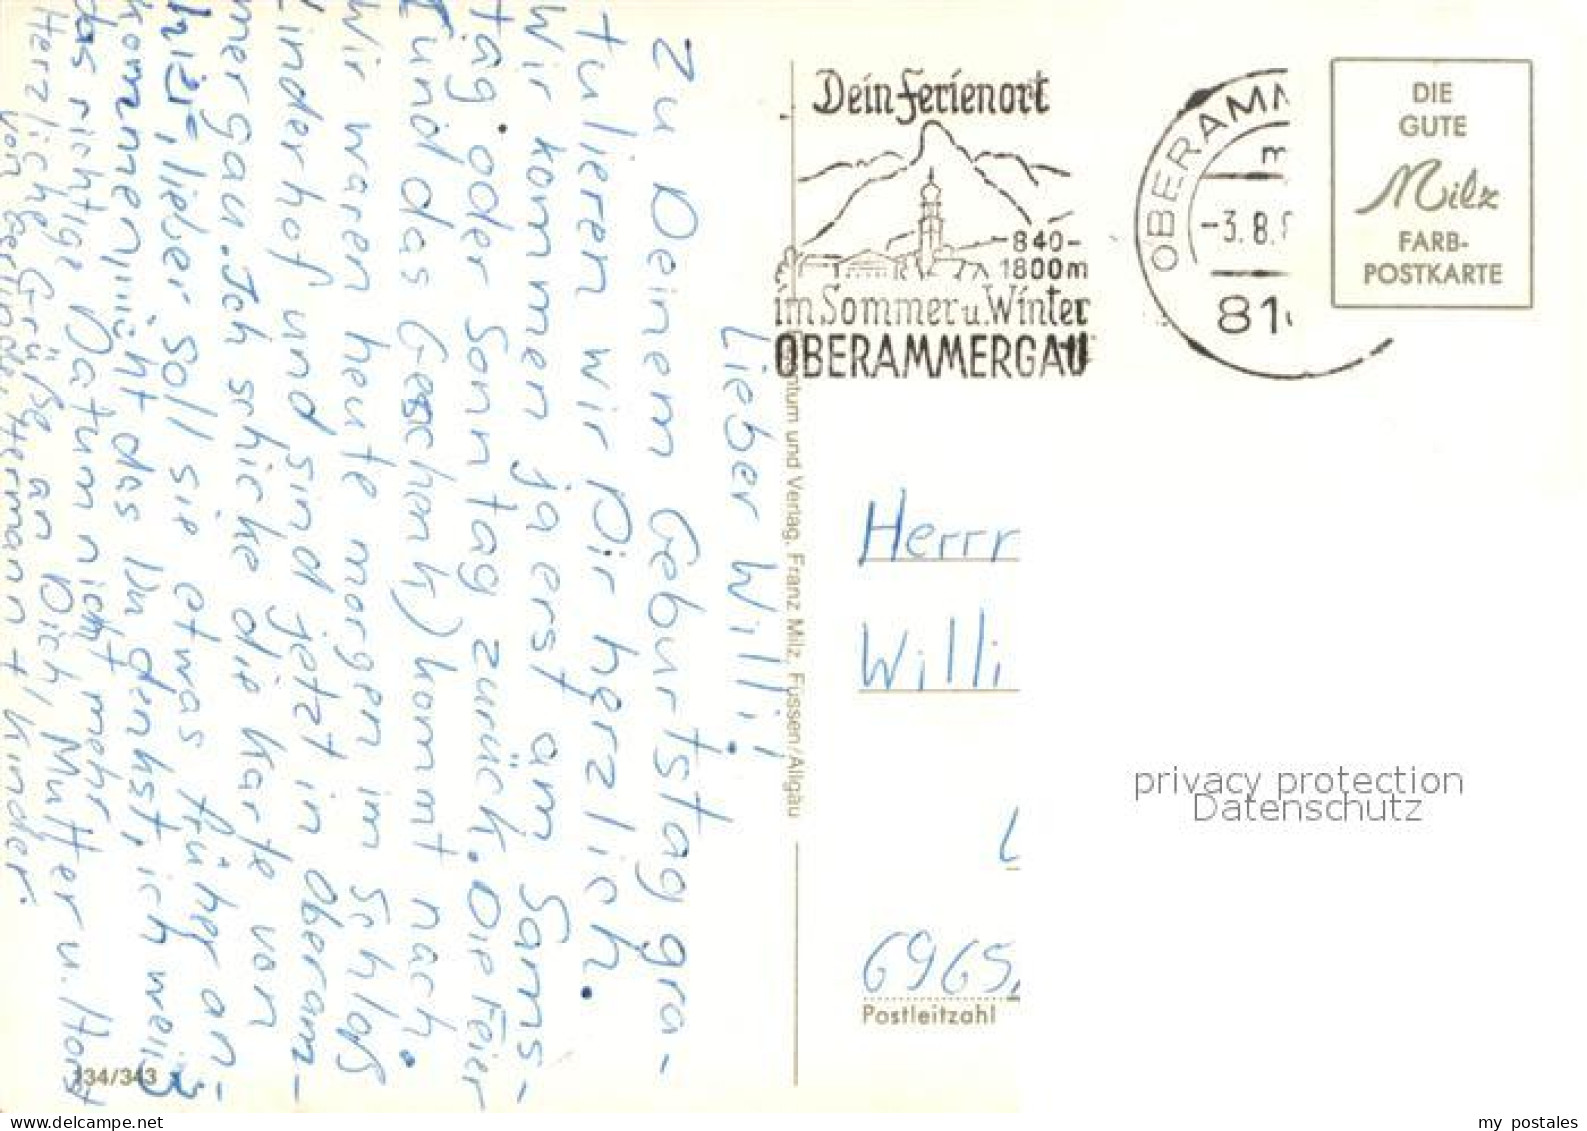 Lieber Willi!
Zu Deinem Geburtstag gra-
tulieren wir Dir herzlich.
Wir kommen ja erst am Sams-
tag oder Sonntag zurück. Die Feier
(und das Geschenk) kommt nach.
Wir waren heute morgen im Schloß
Linderhof und sind jetzt in Oberam-
mergau. Ich schicke die Karte von
hier, lieber soll sie etwas früher an-
kommen, nicht das Du denkst, ich weiß
das richtige Datum nicht mehr.
Herzliche Grüße an Dich, Mutter u. Horst
von Hermann + Kinder.
134/343
Dein Ferienort
840-
1800m
im Sommer u. Winter
OBERAMMERGAU
OBERAMM
-3.8.
81
DIE
GUTE
Milz
FARB-
POSTKARTE
ntum und Verlag, Franz Milz, Füssen/Allgäu
Herrn
Willi
6965
Postleitzahl
privacy protection
Datenschutz
www.delcampe.net
my postales